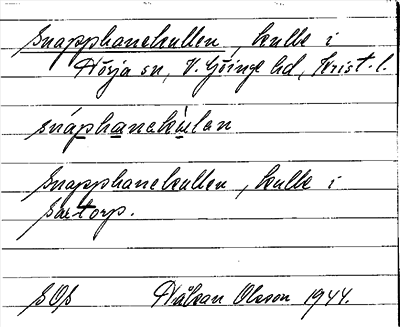 Snapphanekullen, kulle i
Nösja sn, V. Göinge hd, Krist. l.
snáphanekùlan
Snapphanekullen, kulle i
torp.
SOS Håkan Olsson 1944.